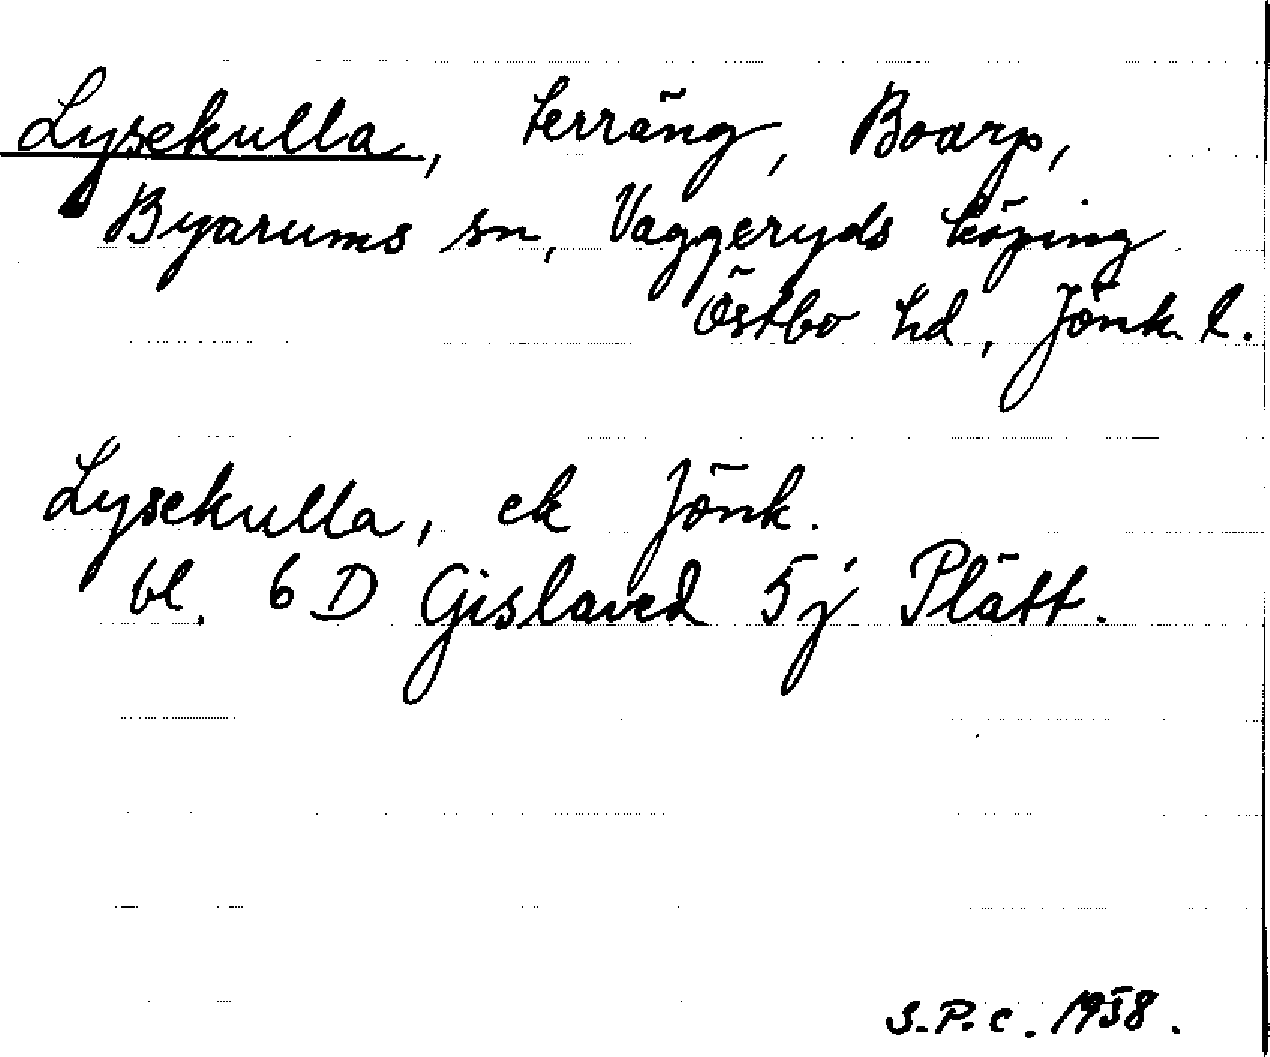 Lysekulla, terräng, Boarp,
Byarums sn, Vaggeryds köping
Östbo hd, Jönk. l.
Lysekulla, ek Jönk.
bl. 6 D Gislaved 5 j Plätt.
S.P.c. 1958.